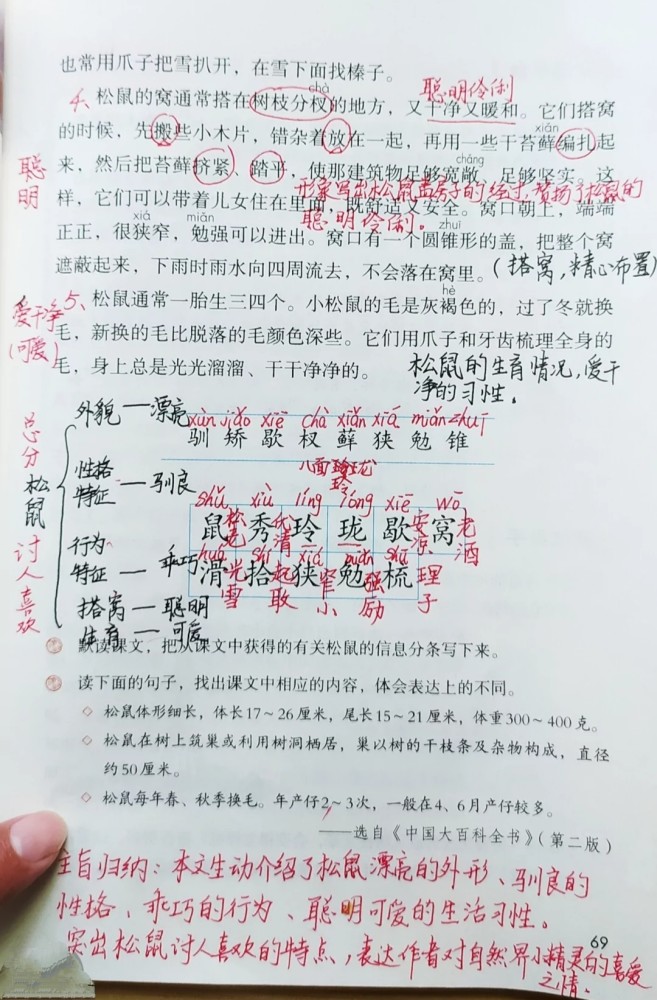 也常用爪子把雪扒开，在雪下面找榛子。
聪明伶俐
chà
4、松鼠的窝通常搭在树枝分杈的地方，又干净又暖和。它们搭窝
的时候，先搬些小木片，错杂着放在一起，再用一些干苔藓编扎起
xiǎn
聪明
来，然后把苔藓挤紧、踏平，使那建筑物足够宽敞、足够坚实。这
chǎng
形象写出松鼠盖房子的经过，赞扬了松鼠的
聪明伶俐。
样，它们可以带着儿女住在里面，既舒适又安全。窝口朝上，端端
xiá miǎn zhuī
正正，很狭窄，勉强可以进出。窝口有一个圆锥形的盖，把整个窝
遮蔽起来，下雨时雨水向四周流去，不会落在窝里。
(搭窝，精心布置)
hè
爱干净
(可爱)
5、松鼠通常一胎生三四个。小松鼠的毛是灰褐色的，过了冬就换
毛，新换的毛比脱落的毛颜色深些。它们用爪子和牙齿梳理全身的
毛，身上总是光光溜溜、干干净净的。
松鼠的生育情况，爱干
净的习性。
总分
松鼠
讨人喜欢
外貌—漂亮
性格
特征—驯良
行为
特征—乖巧
搭窝—聪明
生育—可爱
xùn jiǎo xiē chà xiǎn xiá miǎn zhuī
驯 矫 歇 杈 藓 狭 勉 锥
八面玲珑
玲
shǔ xiù líng lóng xiē wō
鼠 秀 玲 珑 歇 窝
松
清
老酒
huá shí xiá miǎn shū
滑 拾 狭 勉 梳
光
雪
起
窄
小
强
励
理
子
默读课文，把从课文中获得的有关松鼠的信息分条写下来。
读下面的句子，找出课文中相应的内容，体会表达上的不同。
◇ 松鼠体形细长，体长17～26厘米，尾长15～21厘米，体重300～400克。
◇ 松鼠在树上筑巢或利用树洞栖居，巢以树的干枝条及杂物构成，直径
约50厘米。
◇ 松鼠每年春、秋季换毛。年产仔2～3次，一般在4、6月产仔较多。
——选自《中国大百科全书》（第二版）
主旨归纳：本文生动介绍了松鼠漂亮的外形、驯良的
性格、乖巧的行为、聪明可爱的生活习性。
突出松鼠讨人喜欢的特点，表达作者对自然界小精灵的喜爱
之情。
69